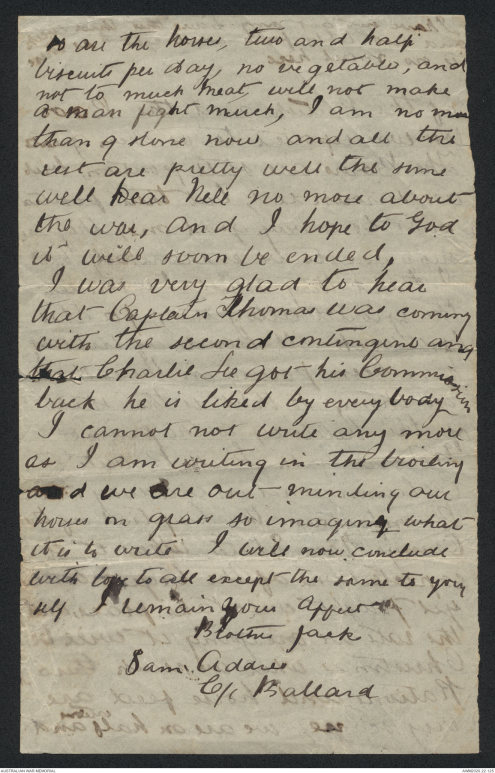 so are the horses, two and half
biscuits per day, no vegetables, and
not to much meat will not make
a man fight much, I am no more
than 9 stone now and all the
rest are pretty well the same
well Dear Nell no more about
the war, and I hope to God
it will soon be ended,
I was very glad to hear
that Captain Thomas was coming
with the second contingent and
that Charlie Lee got his Commission
back he is liked by every body
I cannot not write any more
as I am writing in the broiling
and we are out minding our
horses on grass so imaging what
it is to write I will now conclude
with love to all except the same to your
self I remain your Affect
Brother Jack
Same Addres
C/c Ballard
AUSTRALIAN WAR MEMORIAL